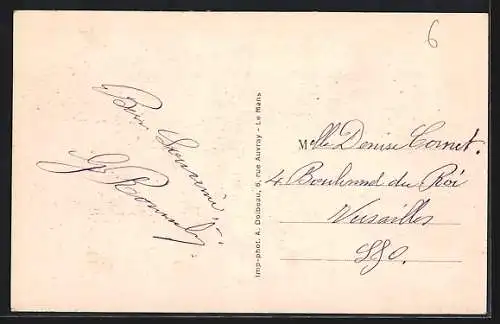 6
Bon Souvenir
Imp-phot. A. Dolbeau, 6, rue Auvray - Le Mans
Melle Denise Cornet.
4 Boulevard du Roi
Versailles
S&O.